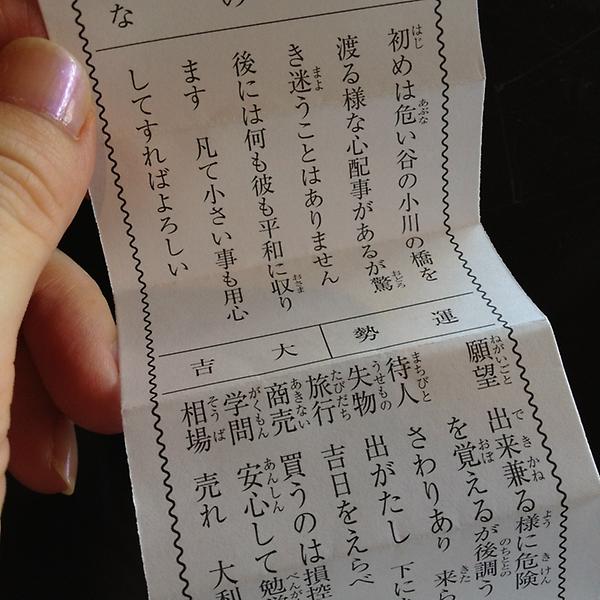 の
な
初めは危い谷の小川の橋を
渡る様な心配事があるが驚
き迷うことはありません
後には何も彼も平和に収り
ます 凡て小さい事も用心
してすればよろしい
運勢
大吉
願望 出来兼る様に危険
を覚えるが後調う
待人 さわりあり 来ら
失物 出がたし 下に
旅行 吉日をえらべ
商売 買うのは損控
学問 安心して勉学
相場 売れ 大利